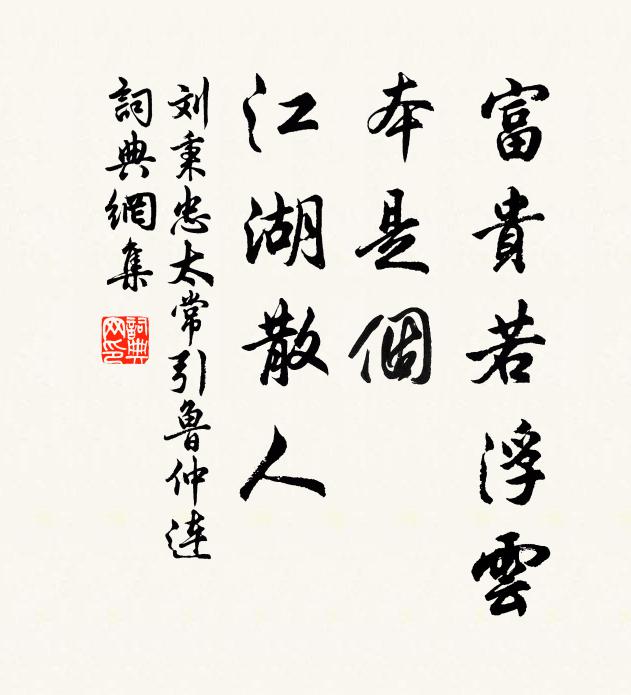 富貴若浮雲
本是個
江湖散人
刘秉忠太常引魯仲連
詞典網集
詞典网印